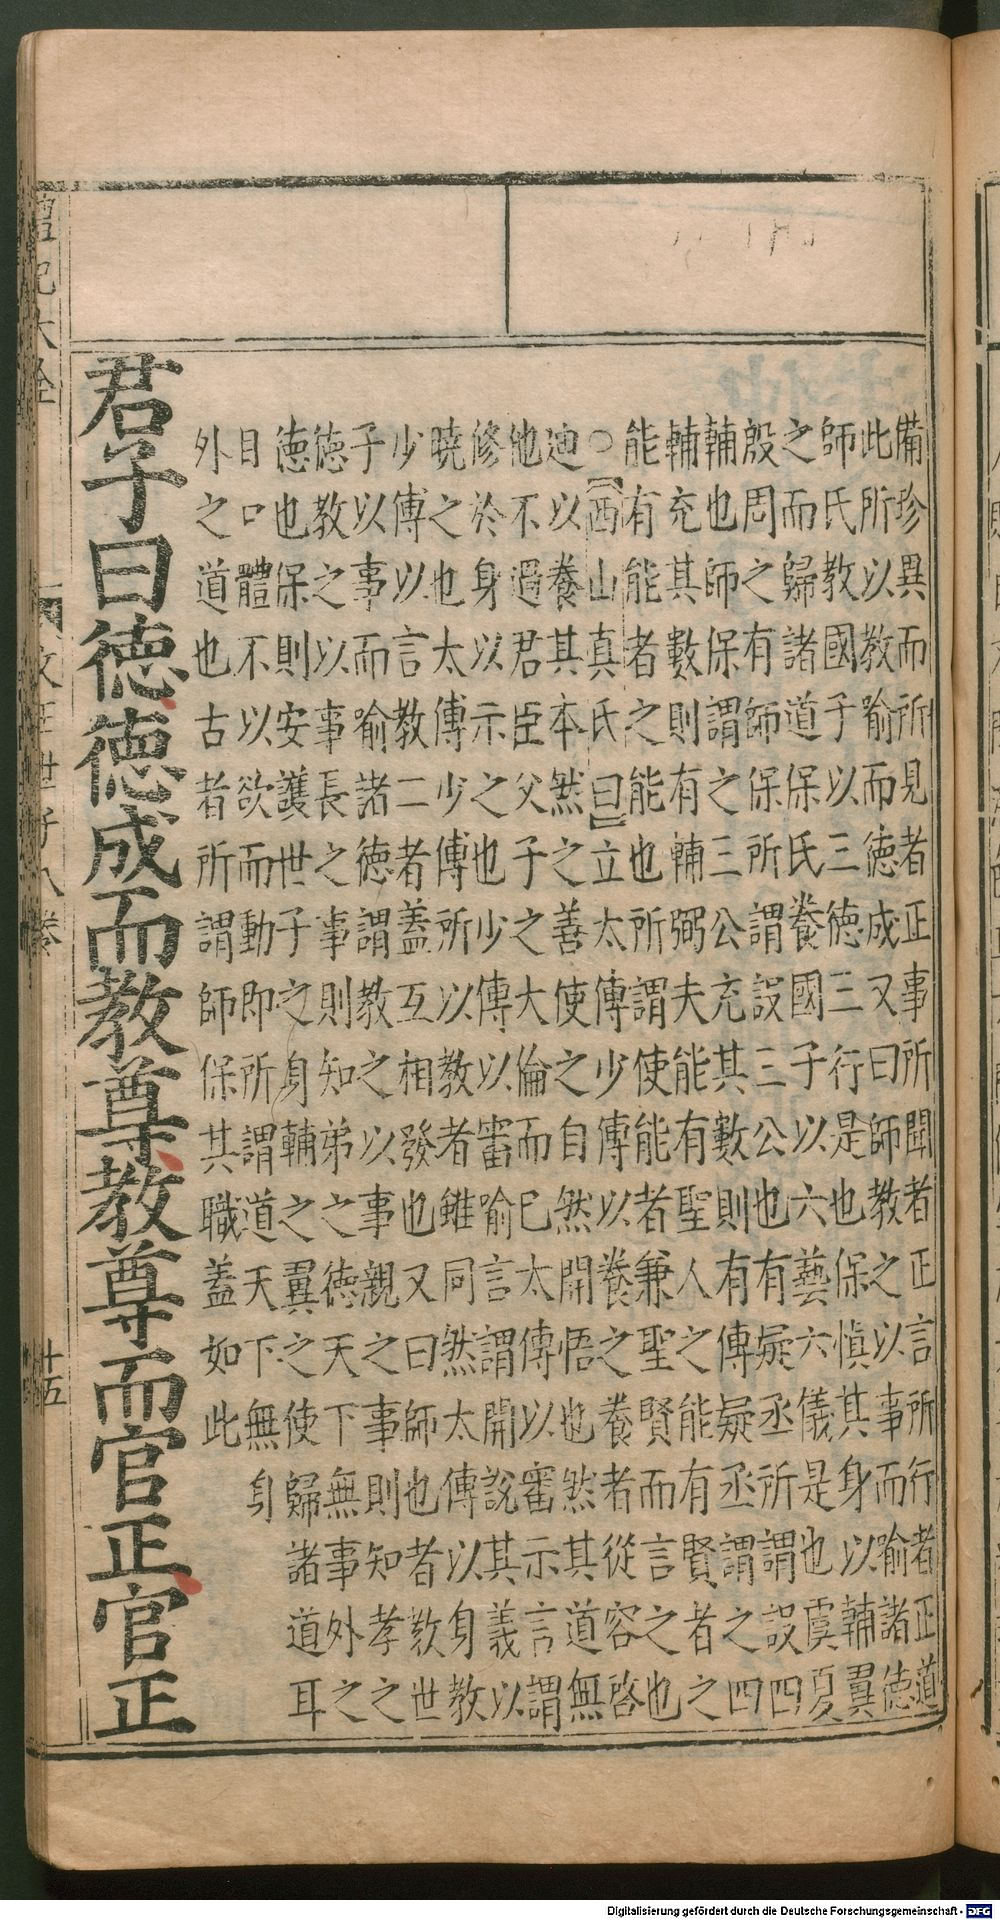 備珍異而所見者正事所聞者正言所行者正道
此所以教喻而徳成又曰師教之以事而喻諸徳
師氏教國子以三徳三行是也保慎其身以輔翼
之而歸諸道保氏養國子以六藝六儀是也虞夏
殷周之有師保所謂設三公也有疑丞所謂設四
輔也師保謂之三公充其數則有傅疑丞謂之四
輔充其數則有輔弼夫能有聖人之能有賢者之
能有能者之能也所謂使能者兼聖賢而言之也
○【西山真氏曰】立太傅少傅以養之養者從容啓
迪以養其本然之善使之自然開悟也然其道無
他不過君臣父子之大倫而已太傅以審示言謂
修於身以示之也少傅以審喻言謂開說其義以
曉之也太傅少傅所以教者雖同然太傅以身教
少傅以言教二者蓋互相發也又曰師也者教世
子以事而喻諸徳謂教之以事親之事則知孝之
徳教之以事長之事則知弟之徳天下無事外之
徳也保則安護世子之身輔之翼之使歸諸道耳
目口體不以欲而動即所謂道天下無身
外之道也古者所謂師保其職蓋如此
君子曰徳徳成而教尊教尊而官正官正
禮記大全 文王世子八卷 十五
Digitalisierung gefördert durch die Deutsche Forschungsgemeinschaft - DFG